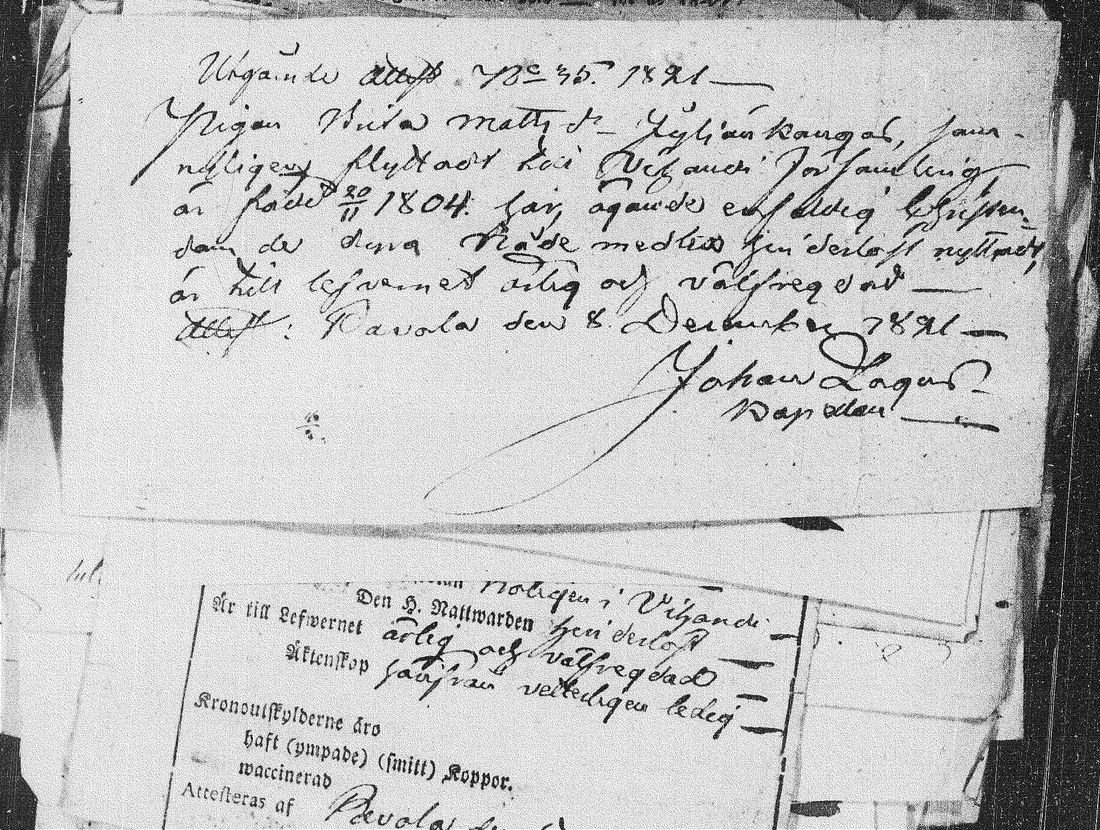 Utgående Attest No 35. 1821
Pigan Brita Matts dr Jyljänkangas, som
nyligen flyttadt till Vihandi Församling
är född 20/11 1804. har, ägande enfaldig Christen-
dom de dyra Nåde medlen hinderlöst nyttjadt,
är till lefvernet ärlig och välfregdad
Attest: Pavola den 8. December 1821
Johan Lagus
Kapellan
nyligen i Vihandi
Den H. Nattwarden hinderlöst
Är till Lefwernet ärlig och välfregdad
Äktenskap härifrån vetterligen ledig
Kronoutskylderne äro
haft (ympade) (smitt) Koppor.
waccinerad
Attesteras af Pavola den